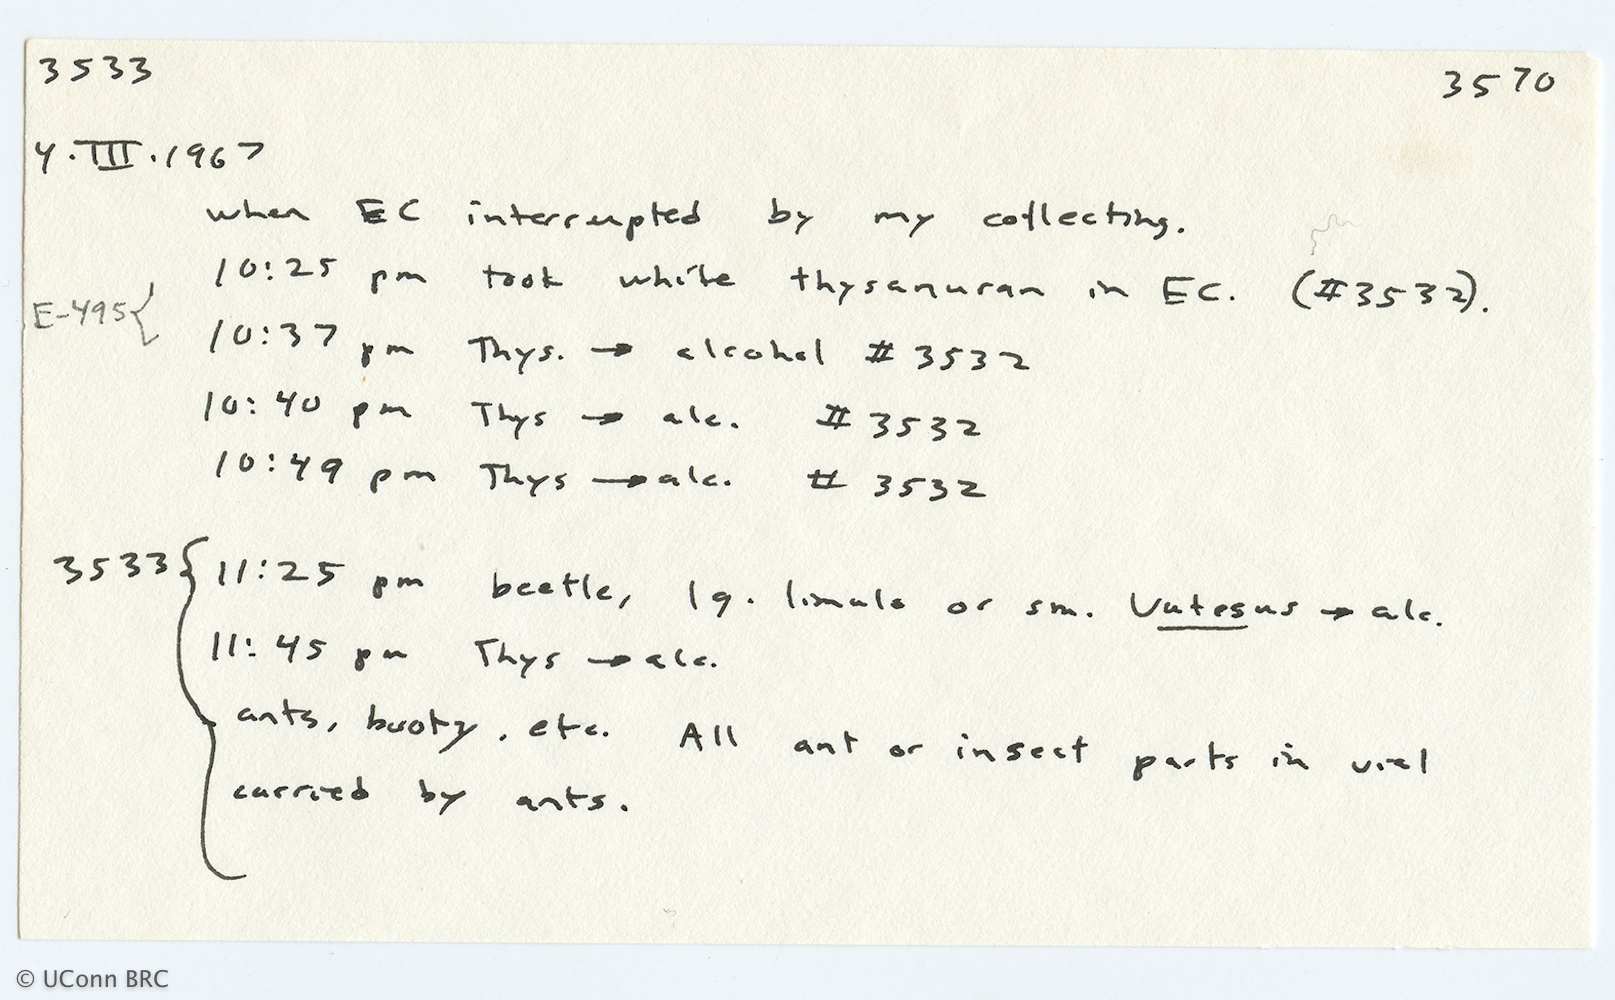 3533 3570
4.III.1967
when EC interrupted by my collecting.
10:25 pm took white thysanuran in EC. (#3532).
E-495{
10:37 pm Thys. → alcohol # 3532
10:40 pm Thys → alc. # 3532
10:49 pm Thys → alc. # 3532
3533{ 11:25 pm beetle, lg. limulo or sm. Vatesus → alc.
11:45 pm Thys → alc.
ants, booty, etc. All ant or insect parts in vial
carried by ants.
© UConn BRC